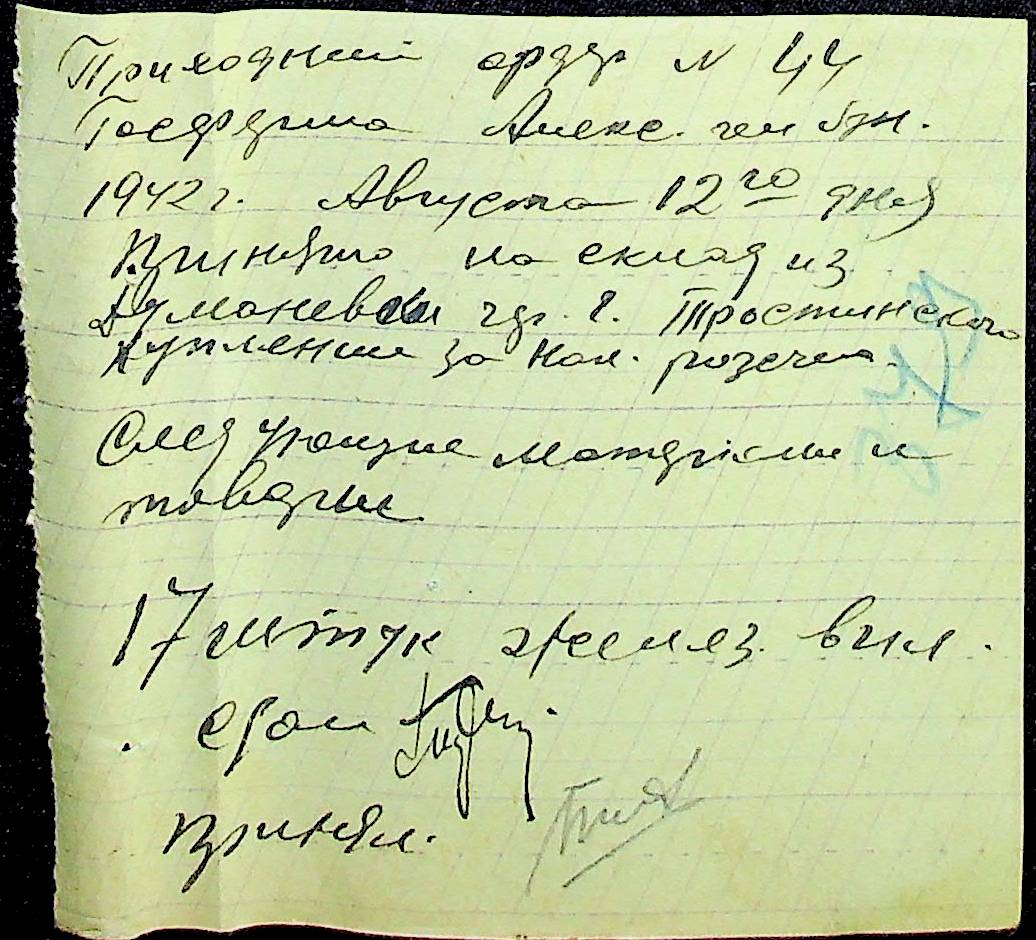 Приходний ордер N 44
Госферма Алекс.
1942 г. Августа 12го дня
Принято на склад из
Думаневски Тростинского
купленни за нал. розечет
Следующие матереали и
товари
17 штук желез. вил.
сдал
Принял.